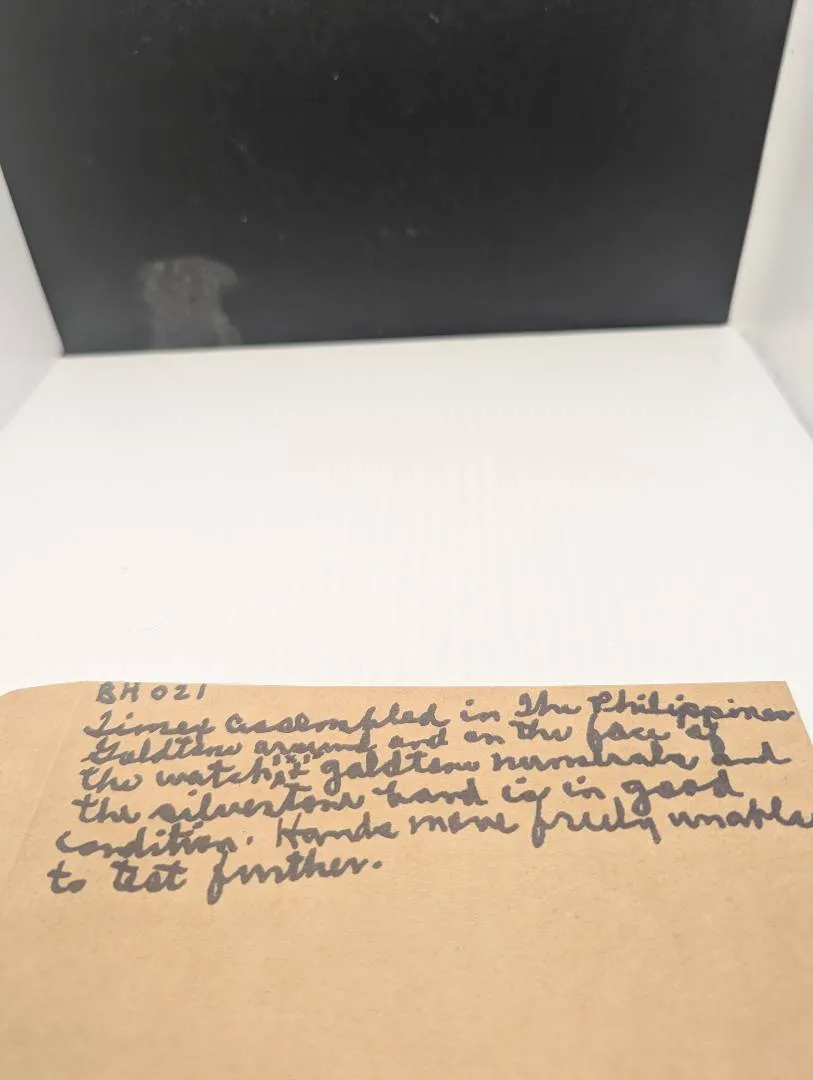 BH 021
Timex assembled in The Philippines
Goldtone around and on the face of
the watch goldtone numerals and
the silvertone band is in good
condition. Hands move freely unable
to test further.